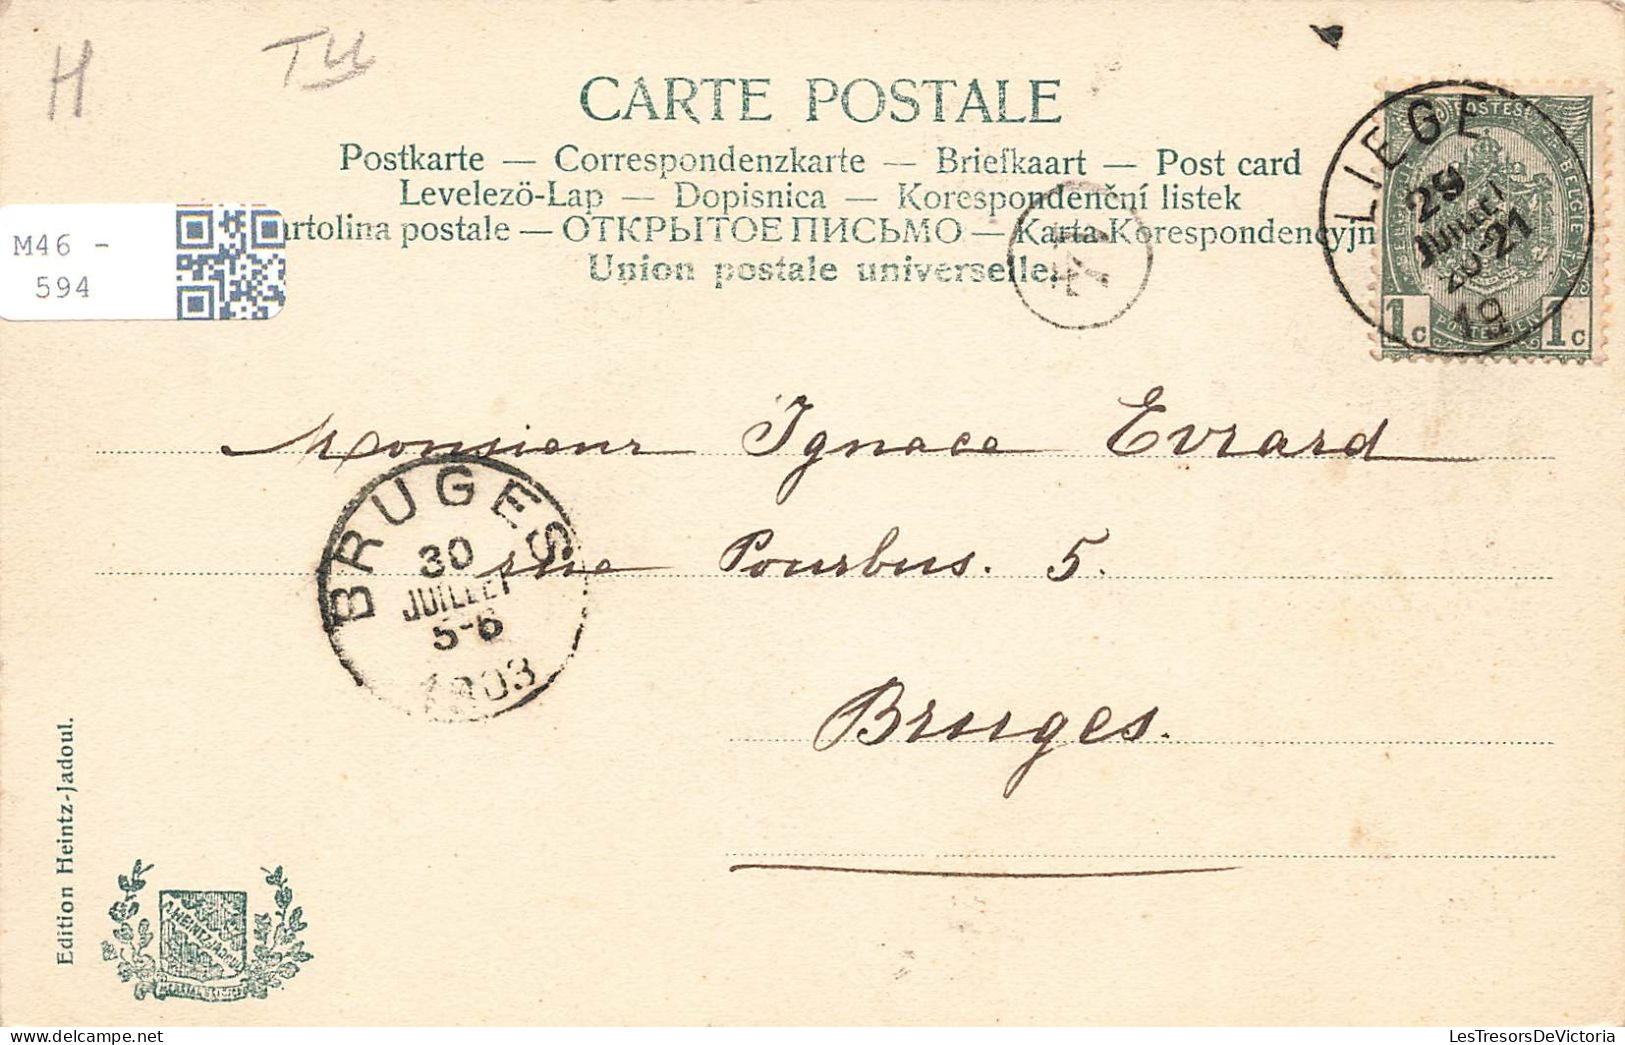 H
TU
CARTE POSTALE
Postkarte — Correspondenzkarte — Briefkaart — Post card
Levelező-Lap — Dopisnica — Korespondenční listek
artolina postale — ОТКРЫТОЕ ПИСЬМО — Karta Korespondencyjn
Union postale universelle.
M46 -
594
LIEGE
29
JUILLET
20-21
POSTES
BELGIE
1c 1c
Monsieur Ignace Evrard
rue Pourbus. 5.
Bruges.
BRUGES
30
JUILLET
5-6
1903
Edition Heintz-Jadoul.
A. HEINTZ JADOUL
delcampe.net
LesTresorsDeVictoria